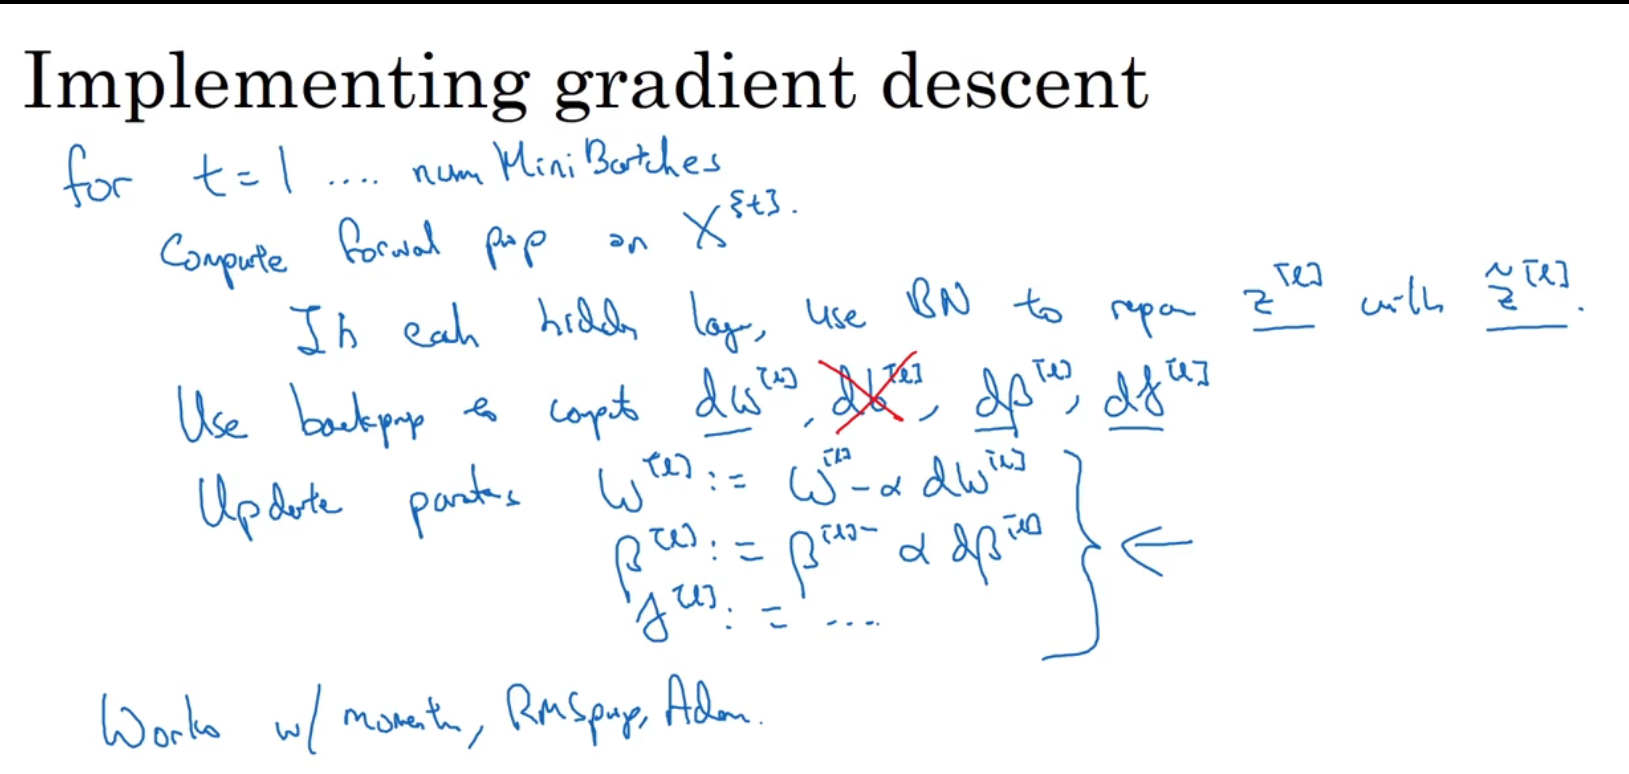 Implementing gradient descent
for t = 1 .... num Mini Batches
Compute forward prop on X^{t}.
In each hidden layer, use BN to repar z^[l] with z̃^[l].
Use backprop to compute dw^[l], db^[l], dβ^[l], dγ^[l]
Update params w^[l] := w^[l] - α dw^[l]
β^[l] := β^[l] - α dβ^[l]
γ^[l] := ....
Works w/ momentum, RMSprop, Adam.